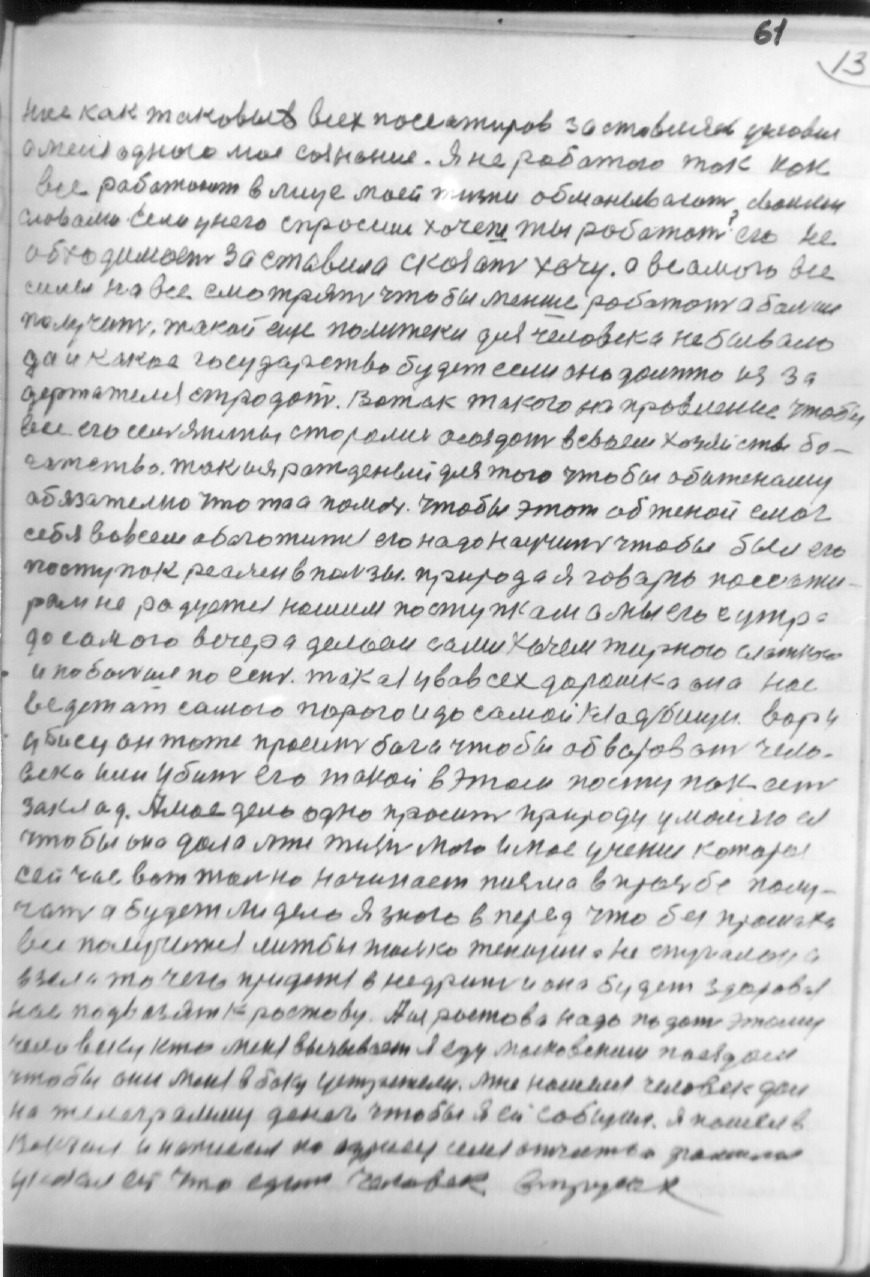 61
13
нас как таковых всех посеатиров заставляет условия
а меня одного мое сознание. Я не работаю так как
все работают в лице моей жизни обманывают своими
словами если у него спросим хочеш ты работат? его не
обходимост заставила сказат хочу. а в самого все
силы на все смотрят чтобы менше работат а болше
получит. такой еще политеки для человека небывало
да и какое государство будет если оно должно из за
держателя стродат. Вот как такого на провление чтобы
все его силы стороны осаждат в своем хозяйстве бо-
гатство. так и я рожденый для того чтобы обиженому
обязателно что то а помоч. чтобы этот обженой смог
себя вовсем обогатится его надо научит чтобы были его
поступок реален в ползы. природа я говарю посеажи-
рам не радуется нашим поступкам а мы его с утра
до самого вечера делаем сами хочем жирного слаткого
и поболше посепт. такая у вовсех дорошка она нас
ведет ат самого порого и до самой кладбищи. вор и
убиец он тоже просит бога чтобы обворават чело-
века или убит его такой в этом поступок ест
заклад. А мое дело одно просит природу умолятся
чтобы она дала мне жизн мою и мое учение которое
сейчас вот толко начинает писма в прозбе полу-
чат а будет ли дело я знаю в перед что без промаха
все получится лижбы толко женщина не спугалас а
взяла то чего придется внедрит и она будет здоровая
нас подвозят к ростову. А из ростова надо подат этому
человеку кто меня вызывает я еду московским поездом
чтобы они меня в боку устретели. мне нашелся человек дал
на телеграмму денег чтобы я ей сообщил. я пошел в
вокзал и написал по адресу
указал ей что едит человек